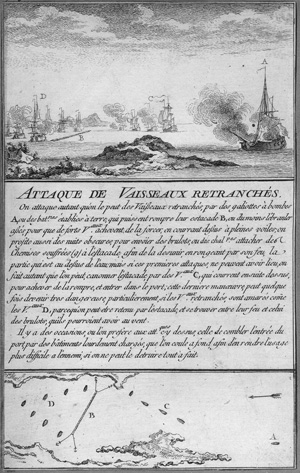 A
D
B
ATTAQUE DE VAISSEAUX RETRANCHÉS.
On attaque autant qu'on le peut des Vaisseaux retranchés, par des galiottes à bombes
A, ou des bat.ries établies à terre, qui puissent rompre leur estacade B, ou du moins l'ébranler
assés pour que de forts V.aux achevent de la forcer, en courant dessus à pleines voiles; on
profite aussi des nuits obscures, pour envoier des brulots, ou des chal. attacher des
Chemises souffrées (g) à l'estacade, afin de la desunir en rongeant par son feu la
partie qui est au dessus de l'eau; mais si ces premieres attaques, ne peuvent avoir lieu, on
fait autant que l'on peut, canonner l'estacade par des V.aux C, qui courent ensuite dessus,
pour achever de la rompre, et entrer dans le port, cette derniere manœuvre peut quelque
fois devenir tres dangereuse, particulierement, si les V.aux retranchés sont amarés come
les V.aux D, parcequ'on peut être retenu par l'estacade, et se trouver entre leur feu et celui
des brulots, qu'ils pourroient avoir au vent.
Il y a des occasions, ou l'on préfere aux att. cy dessus, celle de combler l'entrée du
port par des bâtiments lourdement chargés, que l'on coule a fond, afin d'en rendre l'usage
plus difficile a l'ennemi, si on ne peut le detruire tout a fait.
B
C
A